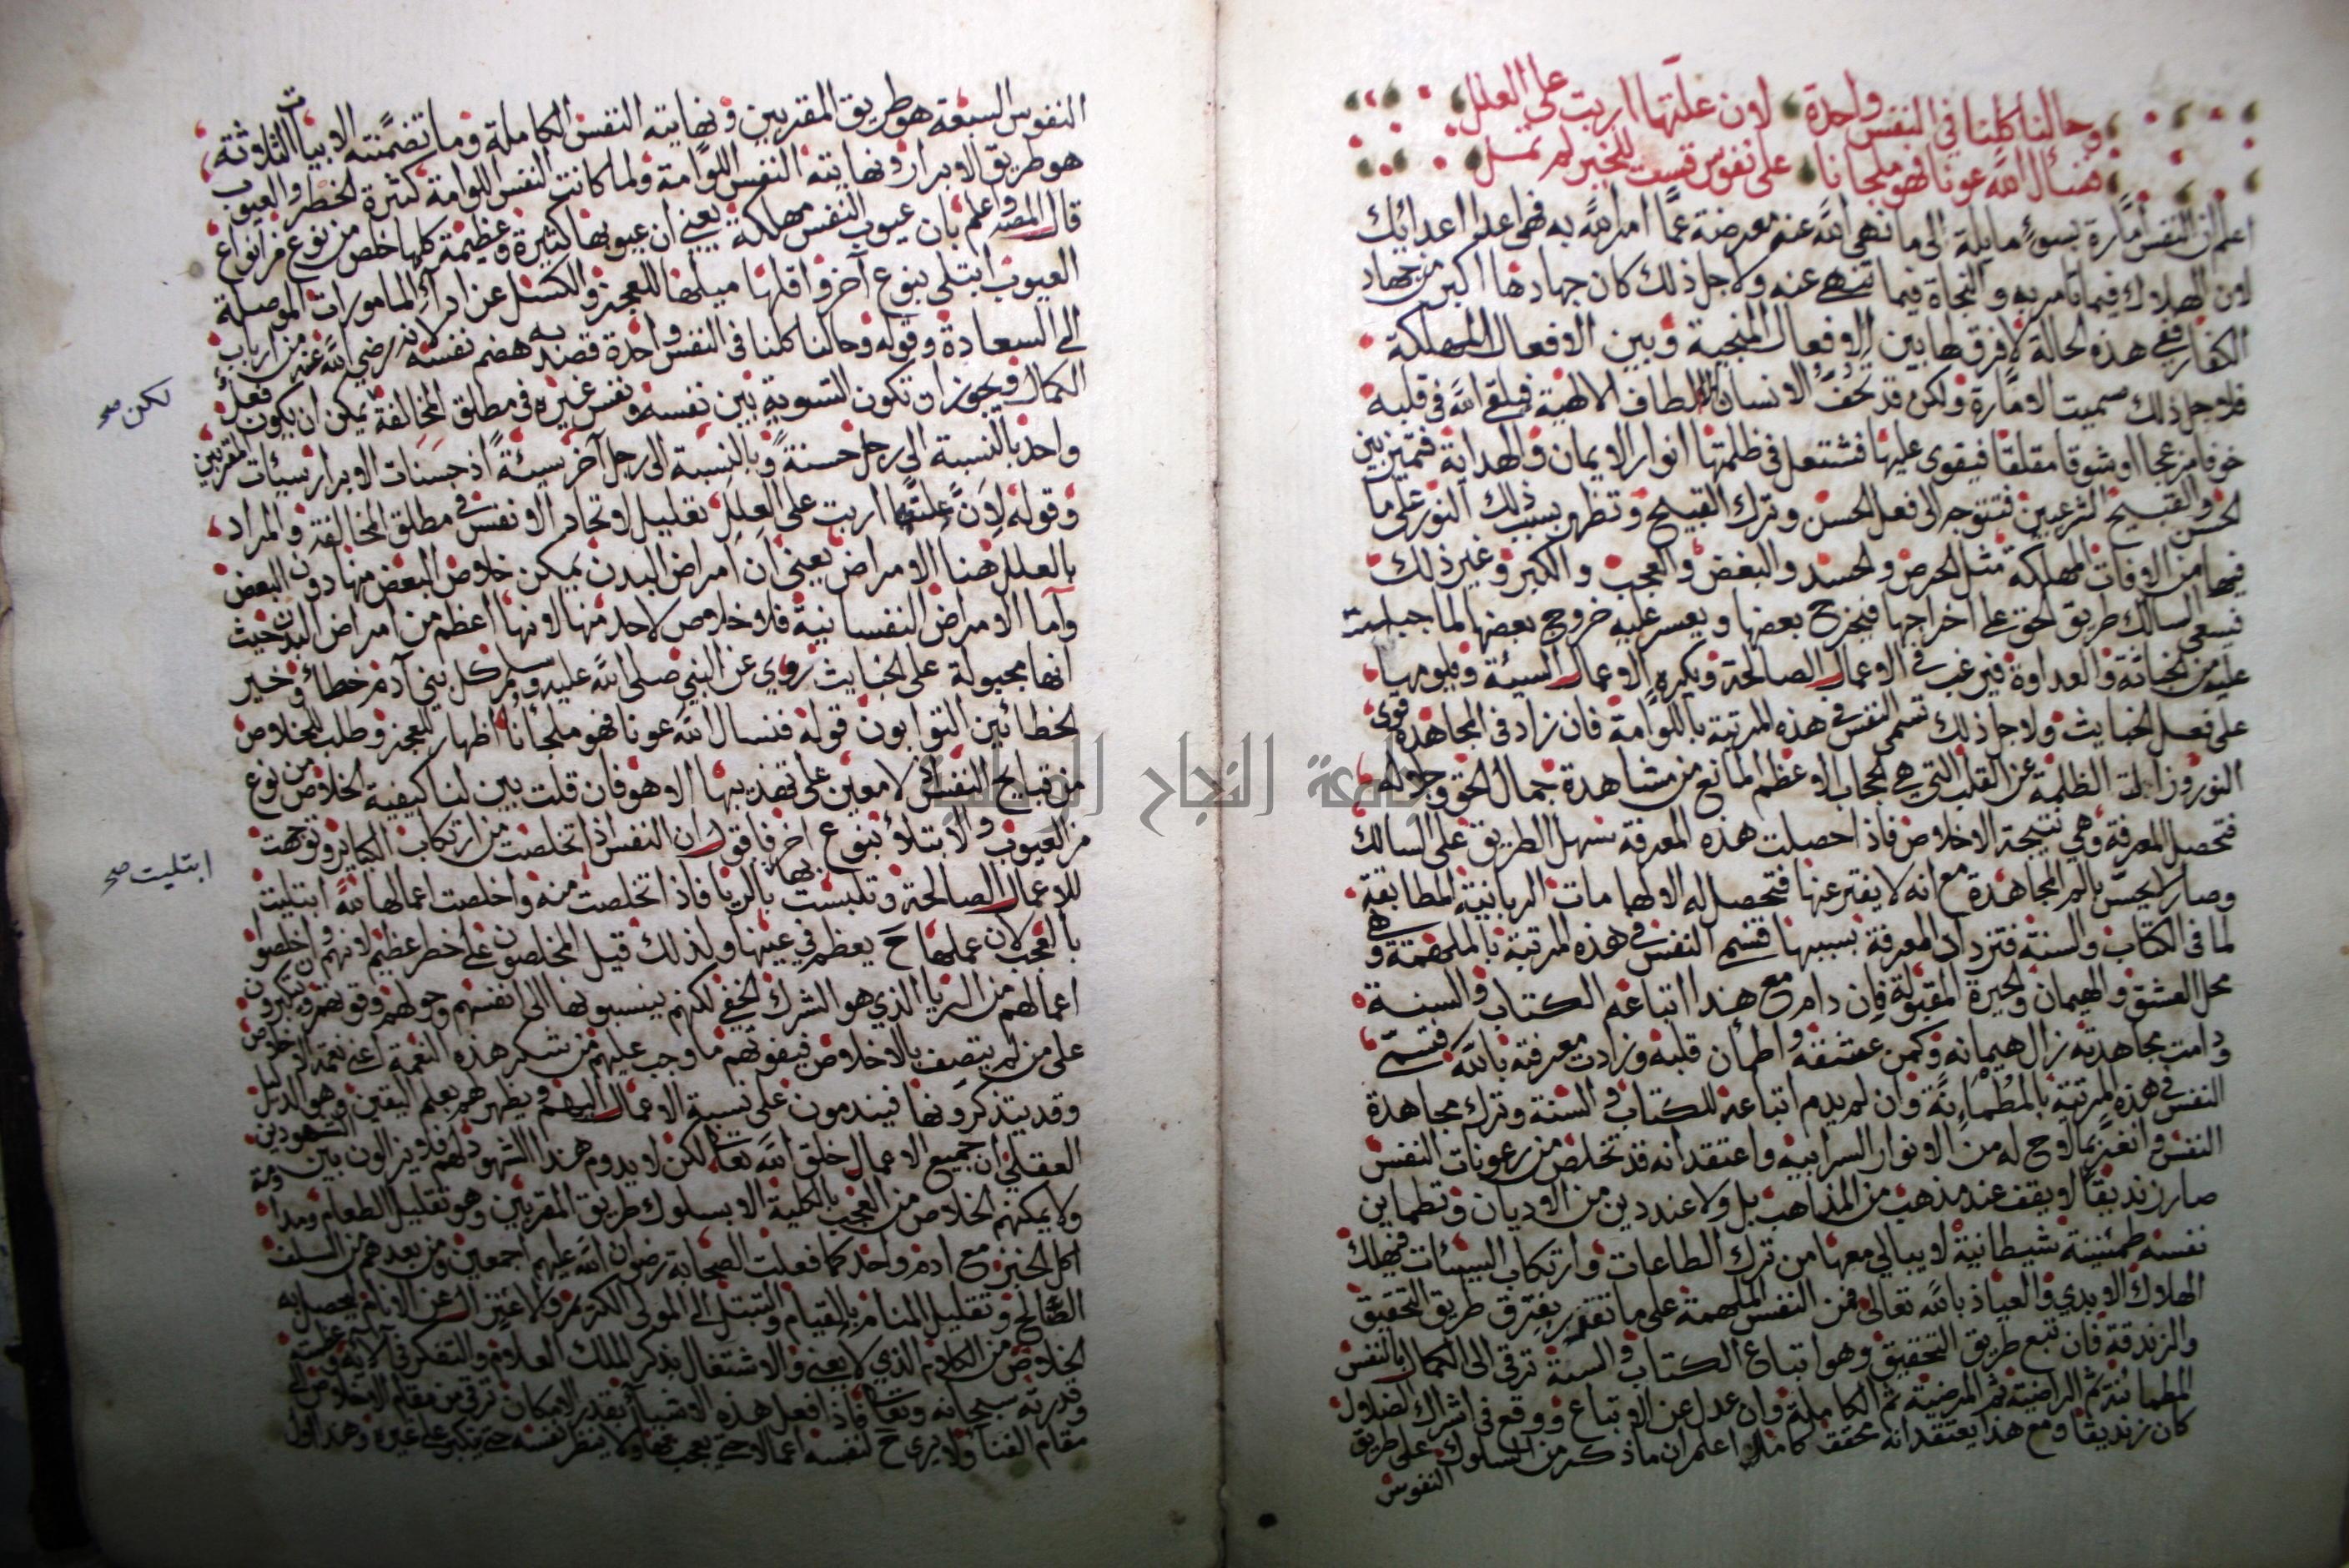 وحالنا كلنا في النفس واحدة لان علتها اربت على العلل
فنسأل الله عونا فهو ملجانا على نفوس قست للخير لم تمل
اعلم ان النفس امارة بسوء مايلة الى ما نهى الله عنه معرضة عما امر الله به فهى اعدا اعدائك
لان الهلاك فيما تامر به والنجاة فيما تنهى عنه ولاجل ذلك كان جهادها اكبر من جهاد
الكفار ففي هذه الحالة لا فرق لها بين الافعال المنجية وبين الافعال المهلكة
فلاجل ذلك سميت الامارة ولكن قد تحف الانسان الالطاف الالهية فيلقى الله في قلبه
خوفا مزعجا او شوقا مقلقا فيقوى عليها فتشتعل في ظلمتها انوار الايمان والهداية فتميز بين
الحسن والقبيح الشرعيين فتتوجه الى فعل الحسن وترك القبيح وتظهر بسبب ذلك النور على ما
فيها من الافات المهلكة مثل الحرص والحسد والبغض والعجب والكبر وغير ذلك
فيسعى السالك طريق الحق على اخراجها فيخرج بعضها ويعسر عليه خروج بعضها لما جبلت
عليه من الخباثة والعداوة فيرغب في الاعمال الصالحة ويكره الاعمال السيئة ويلومها
على فعل الخبايث ولاجل ذلك تسمى النفس في هذه المرتبة باللوامة فان زاد في المجاهدة قوى
النور وزالت الظلمة عن القلب التي هي الحجاب الاعظم المانع من مشاهدة جمال الحق وجلاله
فتحصل المعرفة وهي نتيجة الاخلاص فاذا حصلت هذه المعرفة سهل الطريق على السالك
وصار لا يحس بالم المجاهدة مع انه لا يفتر عنها فتحصل له الالهامات الربانية المطابقة
لما في الكتاب والسنة فتزداد المعرفة بسببها فتسمى النفس في هذه المرتبة بالملهمة وهي
محل العشق والهيمان والحيرة المقبولة فان دام مع هذا اتباعه الكتاب والسنة
ودامت مجاهدته زال هيمانه وكمن عشقه واطمأن قلبه وزادت معرفته بالله فتسمى
النفس في هذه المرتبة بالمطمانة وان لم يدم اتباعه للكتاب والسنة وترك مجاهدة
النفس وانغر بما لاح له من الانوار السرابية واعتقد انه قد تخلص من رعونات النفس
صار زنديقا لا يقف عند مذهب من المذاهب بل ولا عند دين من الاديان وتطماين
نفسه طمئنينة شيطانية لا يبالي معها من ترك الطاعات وارتكاب السيئات فيهلك
الهلاك الابدي والعياذ بالله تعالى فمن النفس الملهمة على ما تقدم يفترق طريق التحقيق
والزندقة فان تبع طريق التحقيق وهو اتباع الكتاب والسنة ترقى الى الكمال بالنفس
المطمانئة ثم الراضية ثم المرضية ثم الكاملة وان عدل عن الاتباع ووقع في اشراك الضلال
كان زنديقا ومع هذا يعتقد انه محقق كامل اعلم ان ما ذكر من السلوك على طريق
النفوس
النفوس السبعة هو طريق المقربين ونهايته النفس الكاملة وما تضمنته الابيات الثلاثة
هو طريق الابرار ونهايته النفس اللوامة ولما كانت النفس اللوامة كثيرة الخطر والعيوب
قال المصنف واعلم بان عيوب النفس مهلكة يعني ان عيوبها كثيرة وعظيمة كلما خلص من نوع من انواع
العيوب ابتلي بنوع آخر واقلها ميلها للعجز والكسل عن ادراك المامورات الموصلة
الى السعادة وقوله وحالنا كلنا في النفس واحدة قصد به هضم نفسه لانه رضي الله عنه من ارباب
الكمال ويجوز ان تكون التسوية بين نفسه ونفس غيره في مطلق المخالفة يمكن ان يكون فعل
لكن صح
واحد بالنسبة الى رجل حسنة وبالنسبة الى رجل آخر سيئة اذ حسنات الابرار سيئات المقربين
وقوله لان علتها اربت على العلل تعليل لاتحاد الانفس في مطلق المخالفة والمراد
بالعلل هنا الامراض يعني ان امراض البدن يمكن خلاص البعض منها دون البعض
واما الامراض النفسانية فلا خلاص لاحد منها لانها اعظم من امراض البدن حيث
انها مجبولة على الخبايث روي عن النبي صلى الله عليه وسلم كل بني آدم خطاء وخير
الخطائين التوابون قوله فنسال الله عونا فهو ملجأنا اظهار للعجز وطلب للخلاص
من قبايح النفس اذ لا معين على تهذيبها الا هو فان قلت بين لنا كيفية الخلاص من نوع
من العيوب والابتلاء بنوع اخر فاقول ان النفس اذا تخلصت من ارتكاب الكباير وتوجهت
للاعمال الصالحة وتلبست بها بالريا فاذا تخلصت منه واخلصت اعمالها لله ابتليت
ابتليت صح
بالعجب لان عملها ح يعظم في عينها ولذلك قيل المخلصون على خطر عظيم لانهم وان اخلصوا
اعمالهم من الريا الذي هو الشرك الخفي لكنهم ينسبونها الى انفسهم وحولهم وقوتهم ويتكبرون
على من لم يتصف بالاخلاص فيفوتهم ما وجب عليهم من شكر هذه النعمة اعني نعمة الاخلاص
وقد يتذكرونها فيندمون على نسبة الاعمال اليهم ويظهر لهم بعلم اليقين وهو الدليل
العقلي ان جميع الاعمال خلق الله تعالى لكن لا يدوم هذا الشهود لهم فلا يزالون بين الشهودين
ولا يمكنهم الخلاص من العجب بالكلية الا بسلوك طريق المقربين وهو تقليل الطعام ومداومة
اكل الخبز مع ادم واحد كما فعلت الصحابة رضوان الله عليهم اجمعين ومن بعدهم من السلف
الصالح وتقليل المنام بالقيام والتبتل الى المولى الكريم والاعتزال عن الانام ليحصل به
الخلاص من الكلام الذي لا يعني والاشتغال بذكر الملك العلام والتفكر في آلائه وعظمته
وقدرته سبحانه وتعالى فاذا فعل هذه الاشياء بقدر الامكان ترقى من مقام الاخلاص الى
مقام الفنا ولا يرى ح لنفسه اعمالا حتى يعجب بها ولا ينظر نفسه حتى يتكبر على غيره وهذا اول
جامعة النجاح الوطنية